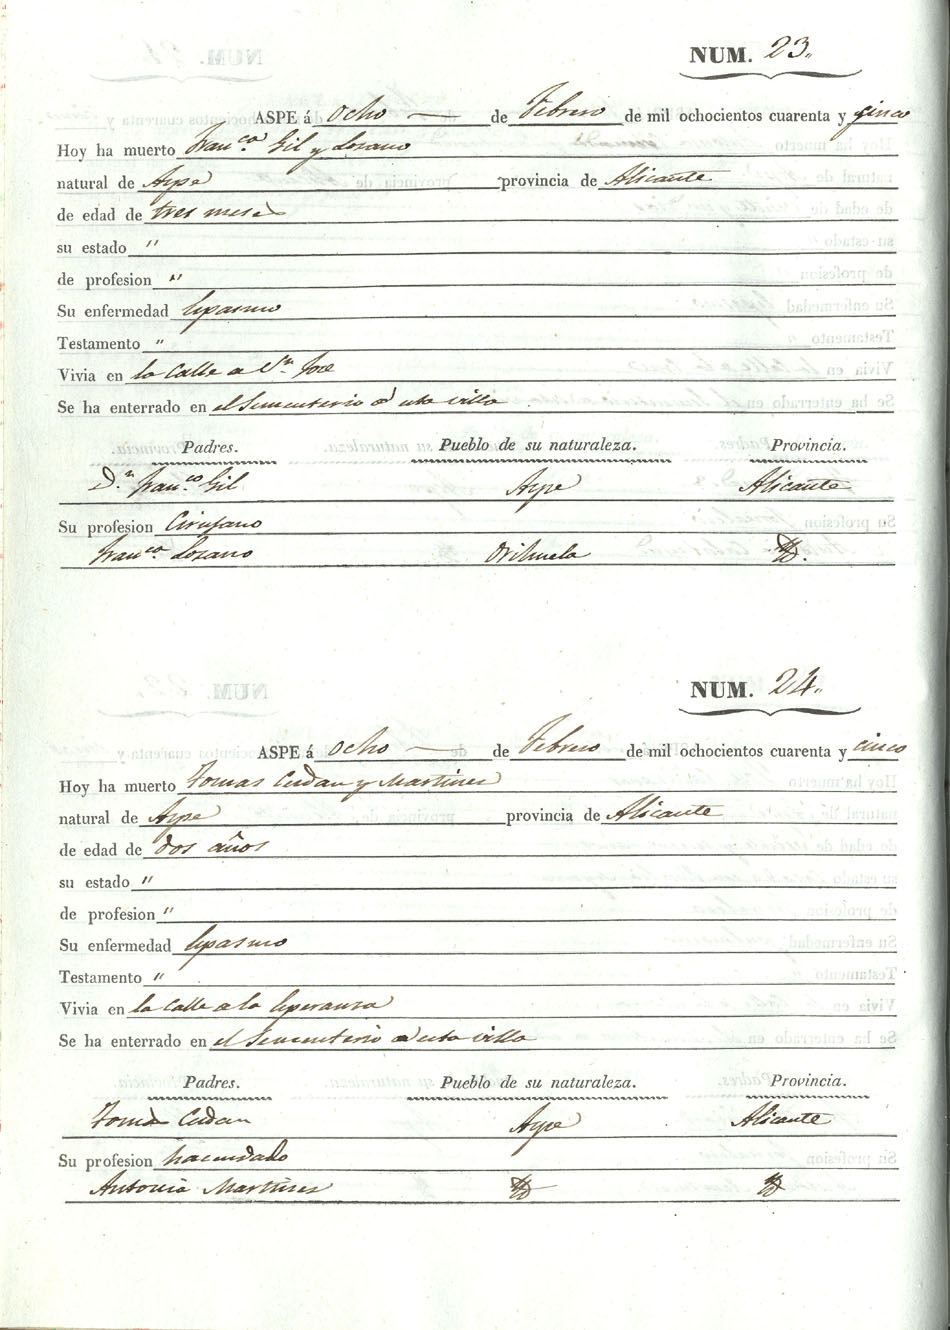 NUM. 23.
ASPE á ocho de Febrero de mil ochocientos cuarenta y cinco
Hoy ha muerto Fran.co Gil y Lozano
natural de Aspe provincia de Alicante
de edad de tres meses
su estado "
de profesion "
Su enfermedad Espasmo
Testamento "
Vivia en la Calle de Sn. Jose
Se ha enterrado en el Sementerio de esta villa
Padres. Pueblo de su naturaleza. Provincia.
D.n Fran.co Gil Aspe Alicante
Su profesion Cirujano
Fran.ca Lozano Orihuela Yd.
NUM. 24.
ASPE á ocho de Febrero de mil ochocientos cuarenta y cinco
Hoy ha muerto Tomas Cerdan y Martines
natural de Aspe provincia de Alicante
de edad de dos años
su estado "
de profesion "
Su enfermedad Espasmo
Testamento "
Vivia en la Calle de la Esperansa
Se ha enterrado en el Sementerio de esta villa
Padres. Pueblo de su naturaleza. Provincia.
Tomas Cerdan Aspe Alicante
Su profesion hacendado
Antonia Martines Yd Yd